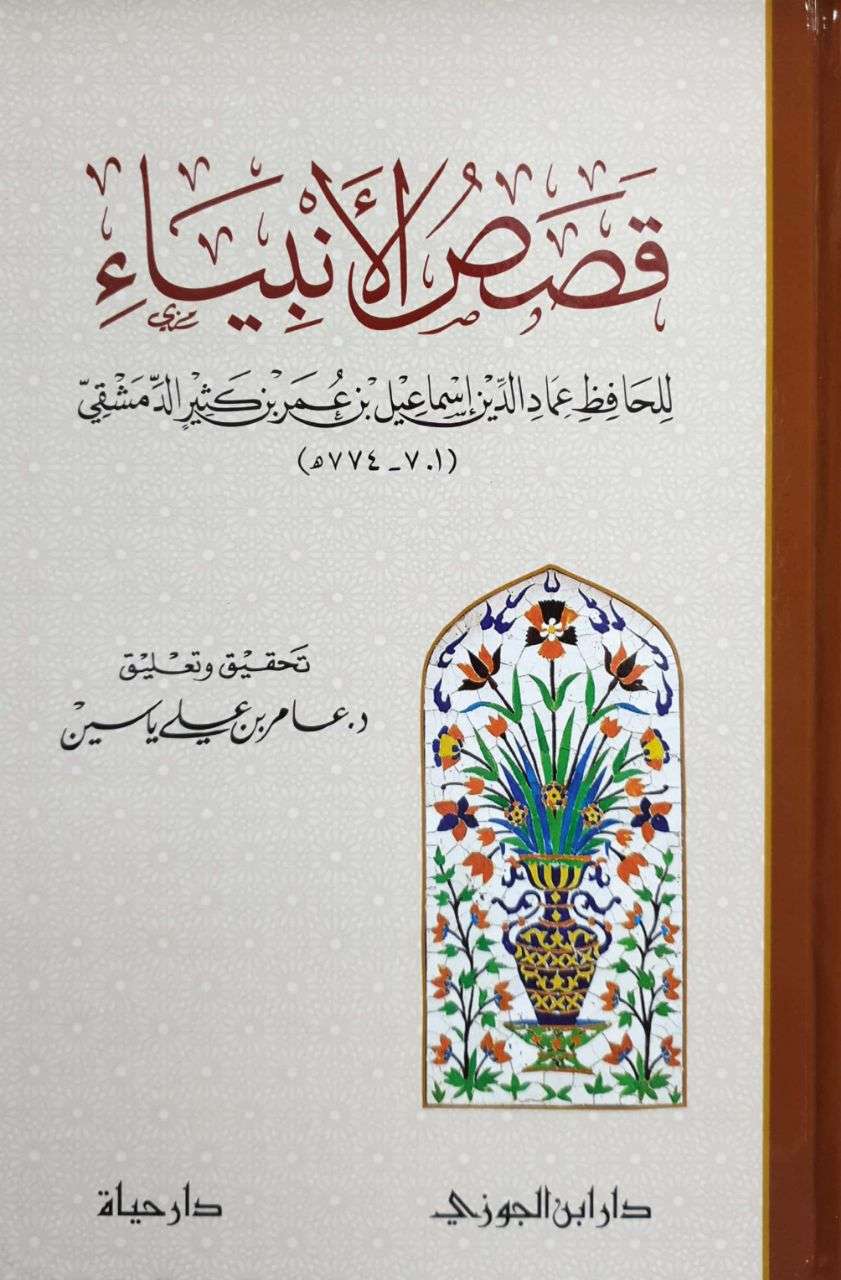 قَصَصُ الْأَنْبِيَاءِ
لِلحَافِظِ عِمَادِ الدِّيْنِ إِسْمَاعِيْل بْنِ عُمَرَ بْنِ كَثِيْرٍ الدِّمَشْقِيّ
(٧٠١ - ٧٧٤هـ)
تَحْقِيْق وتَعْلِيْق
د. عامر بن علي ياسين
دار ابن الجوزي
دار حياة